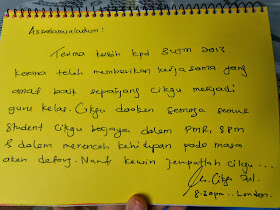 Assalamualaikum:
Terima kasih kpd 3UTM 2013
kerana telah memberikan kerjasama yang
amat baik sepanjang cikgu menjadi
guru kelas. Cikgu doakan semoga semua
student cikgu berjaya dalam PMR, SPM
& dalam merencah kehidupan pada masa
akan datang. Nanti kawin jemputlah cikgu...
Cikgu
8.20pm.. London.